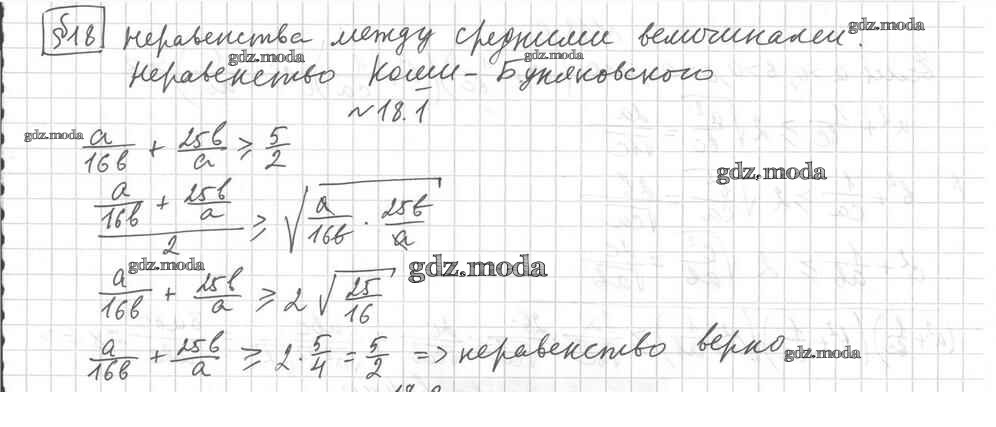 §18 Неравенства между средними величинами.
gdz.moda
Неравенство Коши-Буняковского
gdz.moda
gdz.moda
№18.1
gdz.moda
a/16b + 25b/a ≥ 5/2
gdz.moda
(a/16b + 25b/a)/2 ≥ √(a/16b · 25b/a)
gdz.moda
gdz.moda
a/16b + 25b/a ≥ 2√(25/16)
a/16b + 25b/a ≥ 2·5/4 = 5/2 => неравенство верно
gdz.moda